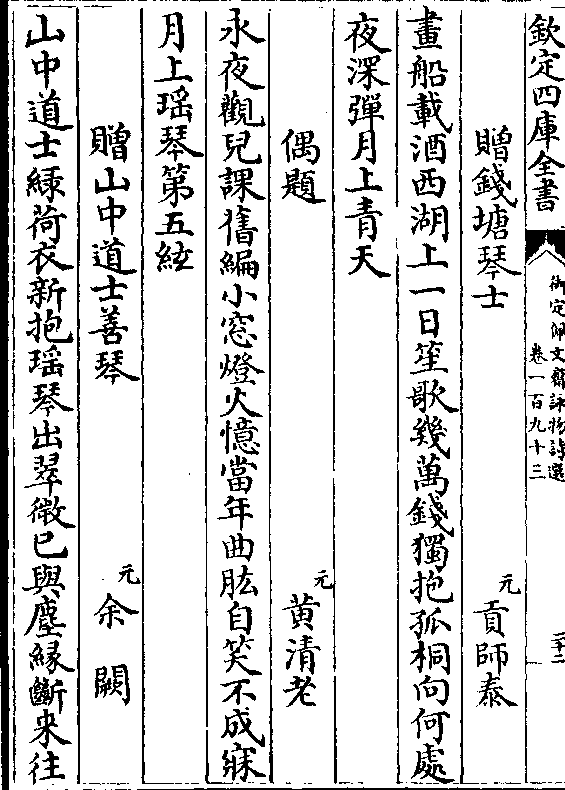 欽定四庫全書
御定佩文齋詠物詩選
卷一百九十三
二十二
贈錢塘琴士 元 貢師泰
畫船載酒西湖上一日笙歌幾萬錢獨抱孤桐向何處
夜深彈月上青天
偶題 元 黄清老
永夜觀兒課舊編小窓燈火憶當年曲肱自笑不成寐
月上瑶琴第五絃
贈山中道士善琴 元 余闕
山中道士緑荷衣新抱瑶琴出翠微已與塵緣斷来往